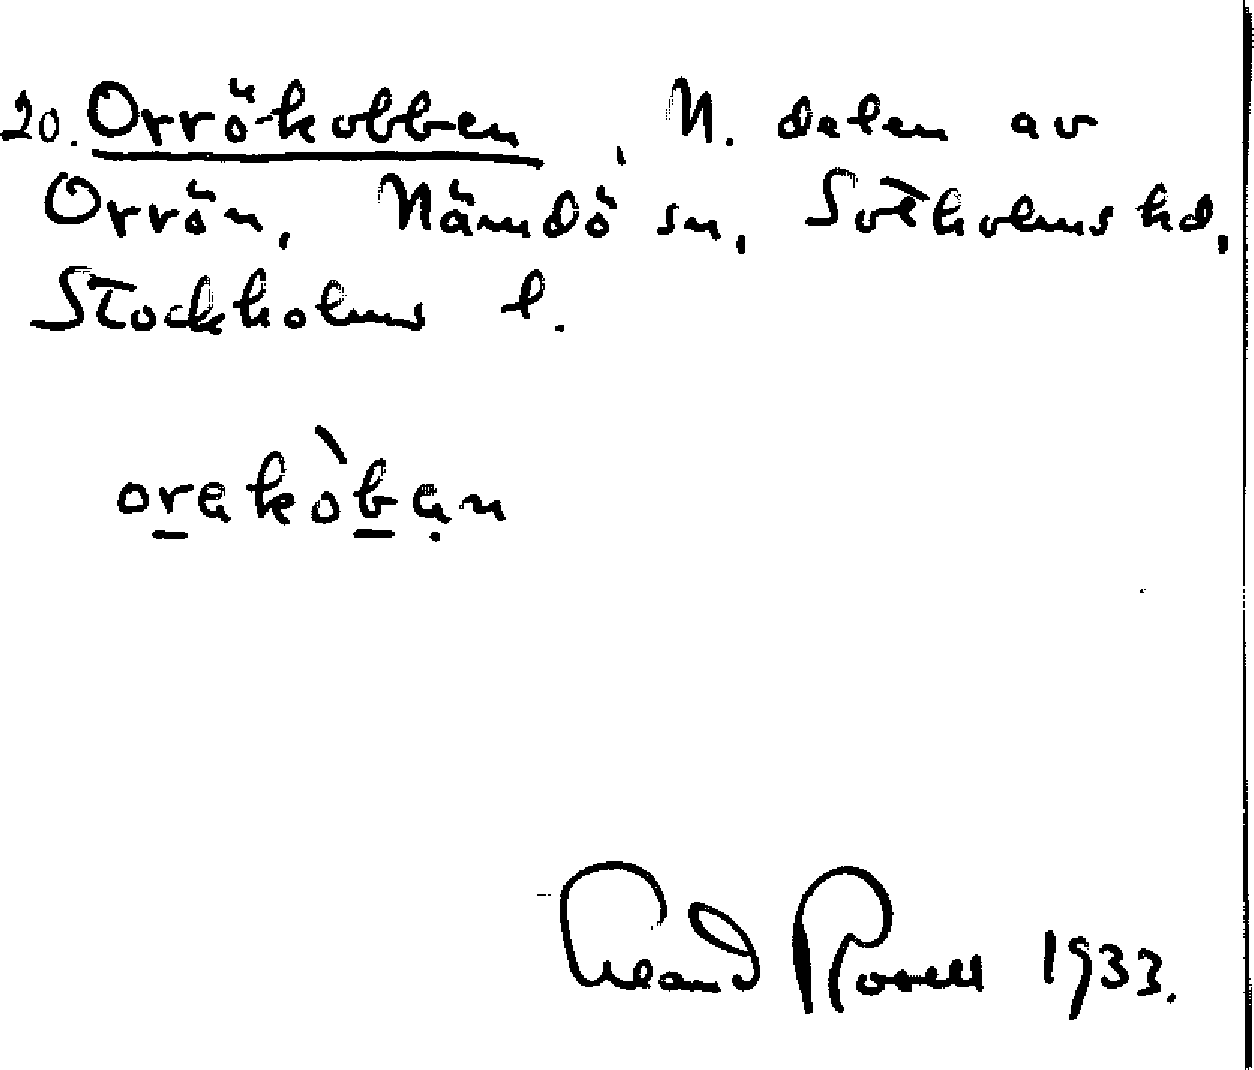 20. Orrökobben, N. delen av
Orrön, Nämdö sn, Sotholms hd,
Stockholms l.
orakòban
Erland Rosell 1933.